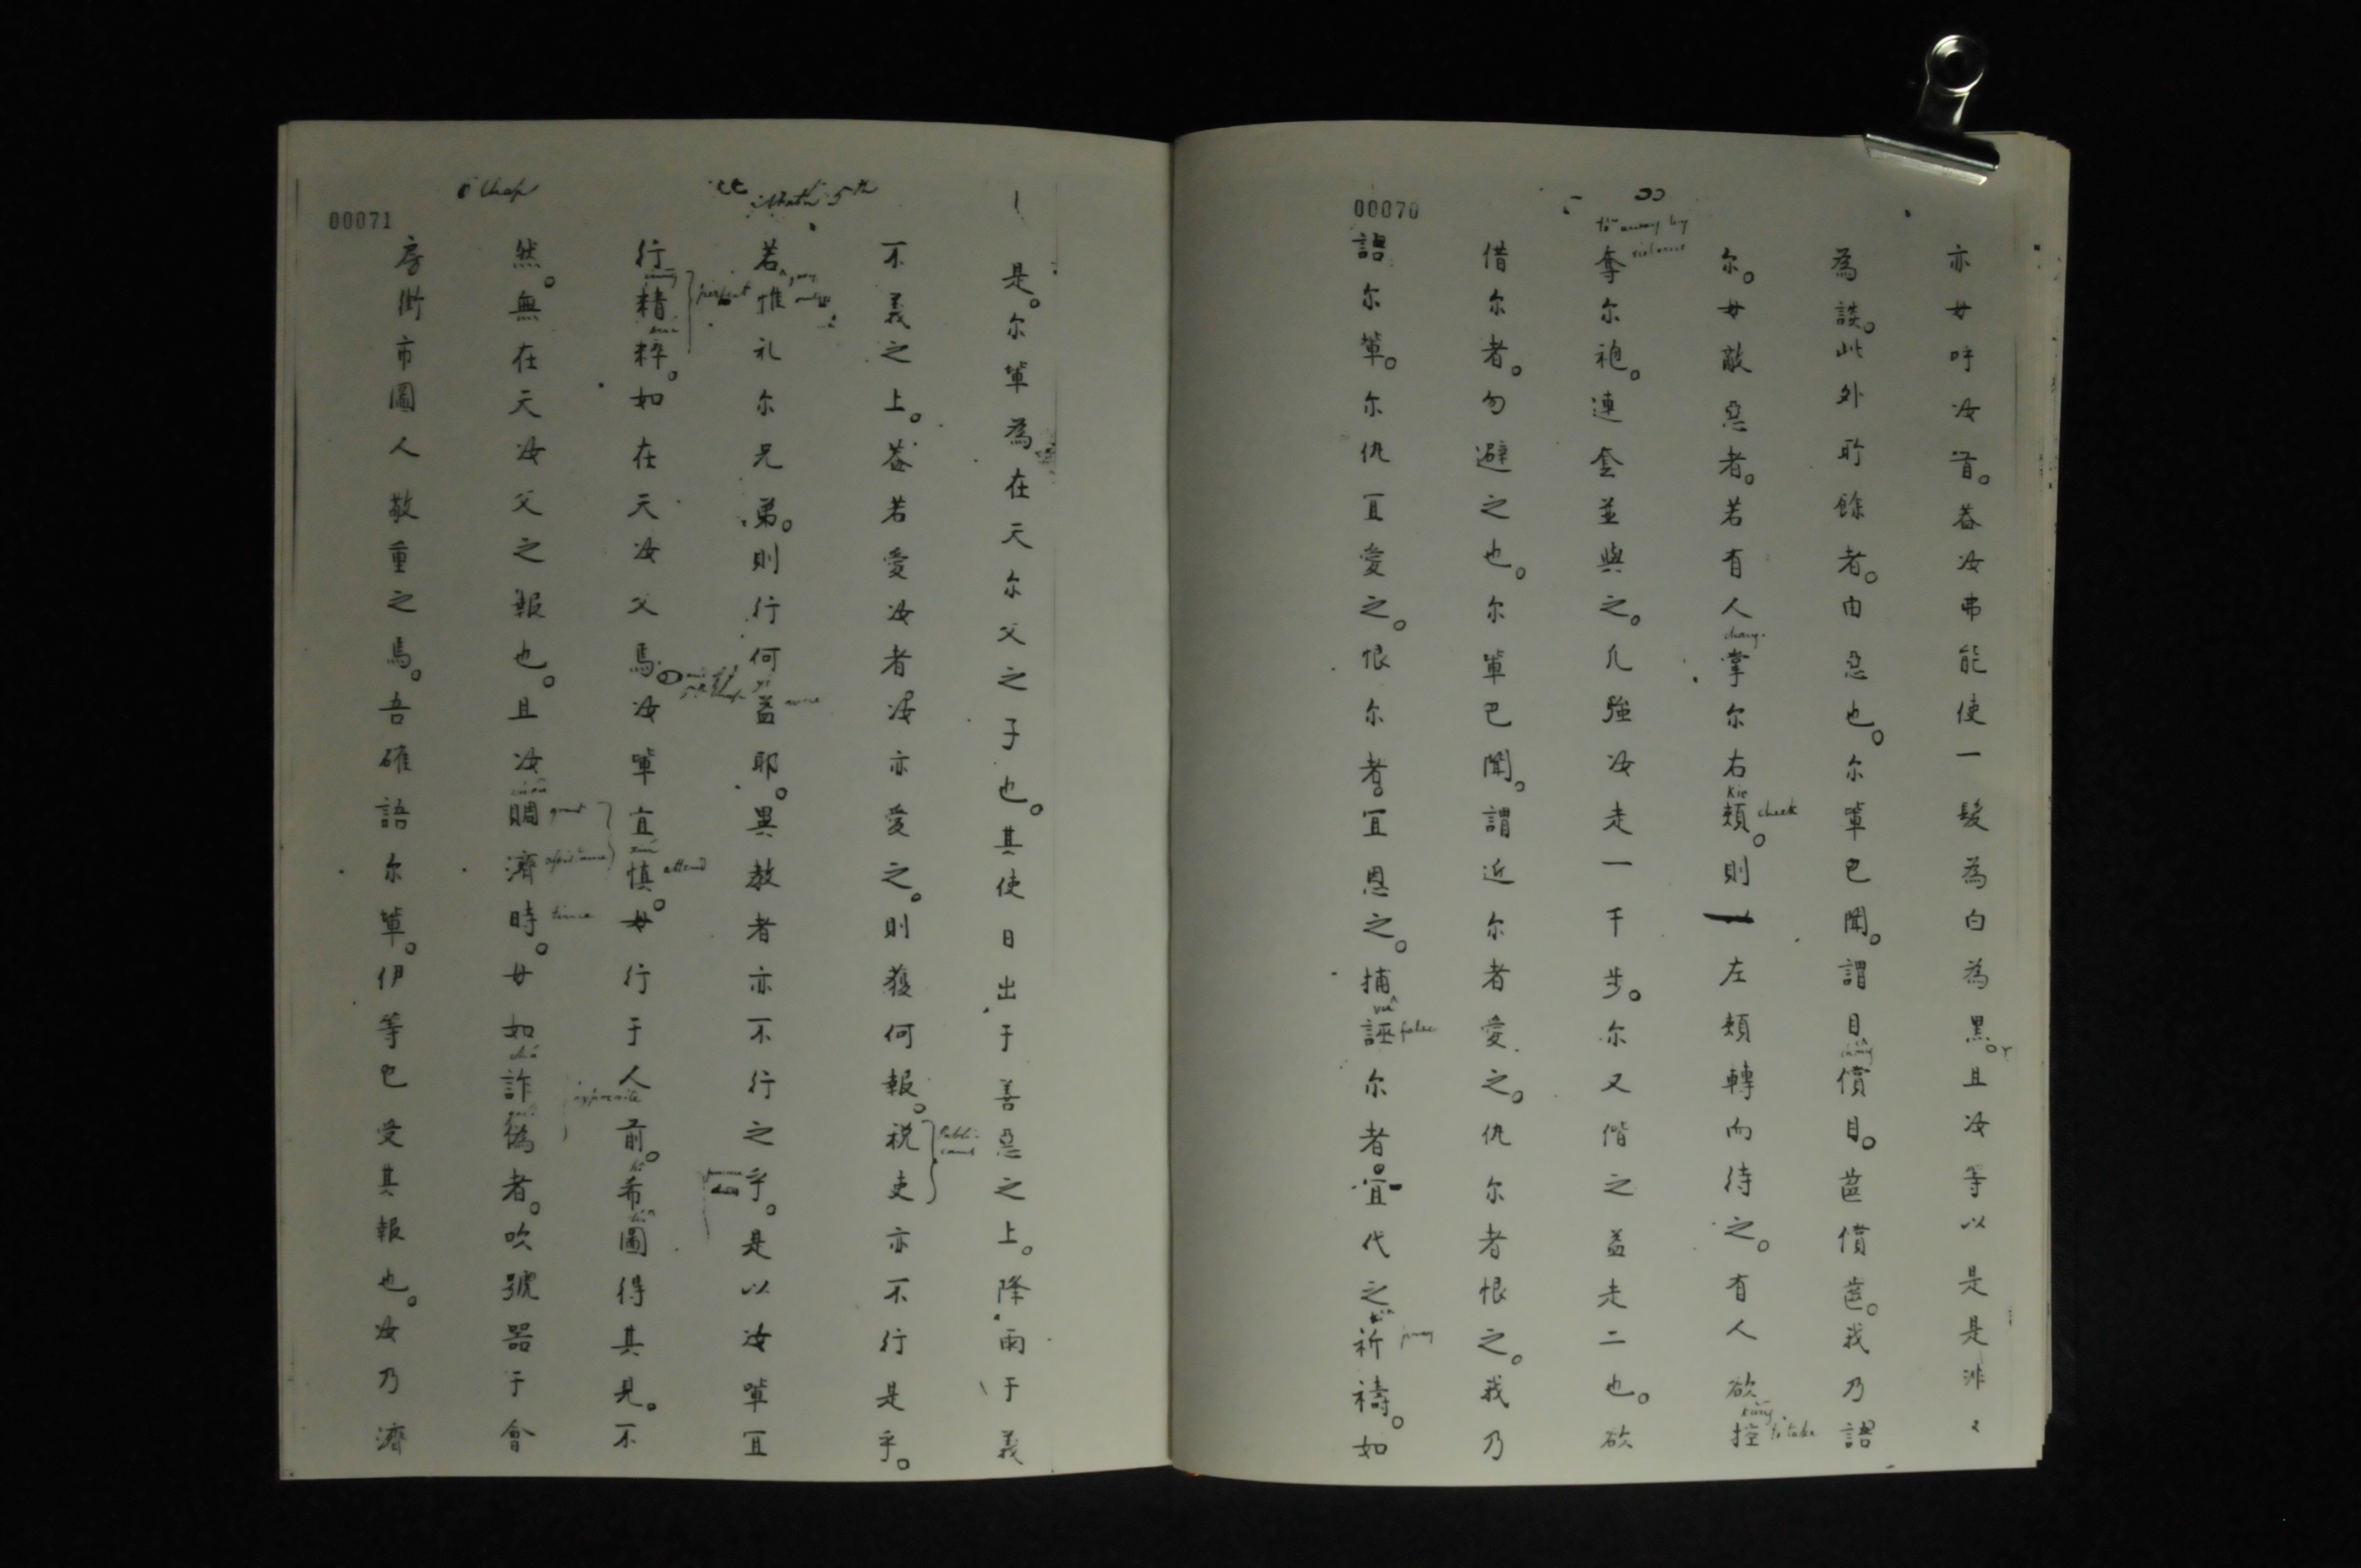 00070
亦毋呼汝首。葢汝弗能使一髮為白為黑。且汝等以是是非〻
為談。此外所餘者。由惡也。尔軰已聞。謂目償目。齒償齒。我乃語
尔。毋敵惡者。若有人掌尔右頬。則左頬轉向待之。有人欲控
奪尔袍。連套並與之。凡強汝走一千步。尔又偕之益走二也。欲
借尔者。勿避之也。尔軰已聞。謂近尔者愛之。仇尔者恨之。我乃
語尔軰。尔仇宜愛之。恨尔者。宜恩之。捕誣尔者宜代之祈禱。如
to away by
violence
cheek
to take
false
pray
00071
Math 5th
6 Chap
是。尔軰為在天尔父之子也。其使日出于善惡之上。降雨于義
不義之上。葢若愛汝者汝亦愛之。則獲何報。税吏亦不行是乎。
若惟礼尔兄弟。則行何益耶。異教者亦不行之乎。是以汝軰宜
行精粹。如在天汝父焉。汝軰宜慎。毋行于人前。希圖得其見。不
然。無在天汝父之報也。且汝賙濟時。毋如詐偽者。吹號器于會
房街市圖人敬重之焉。吾確語尔軰。伊等已受其報也。汝乃濟
perfect
attend
hypocrite